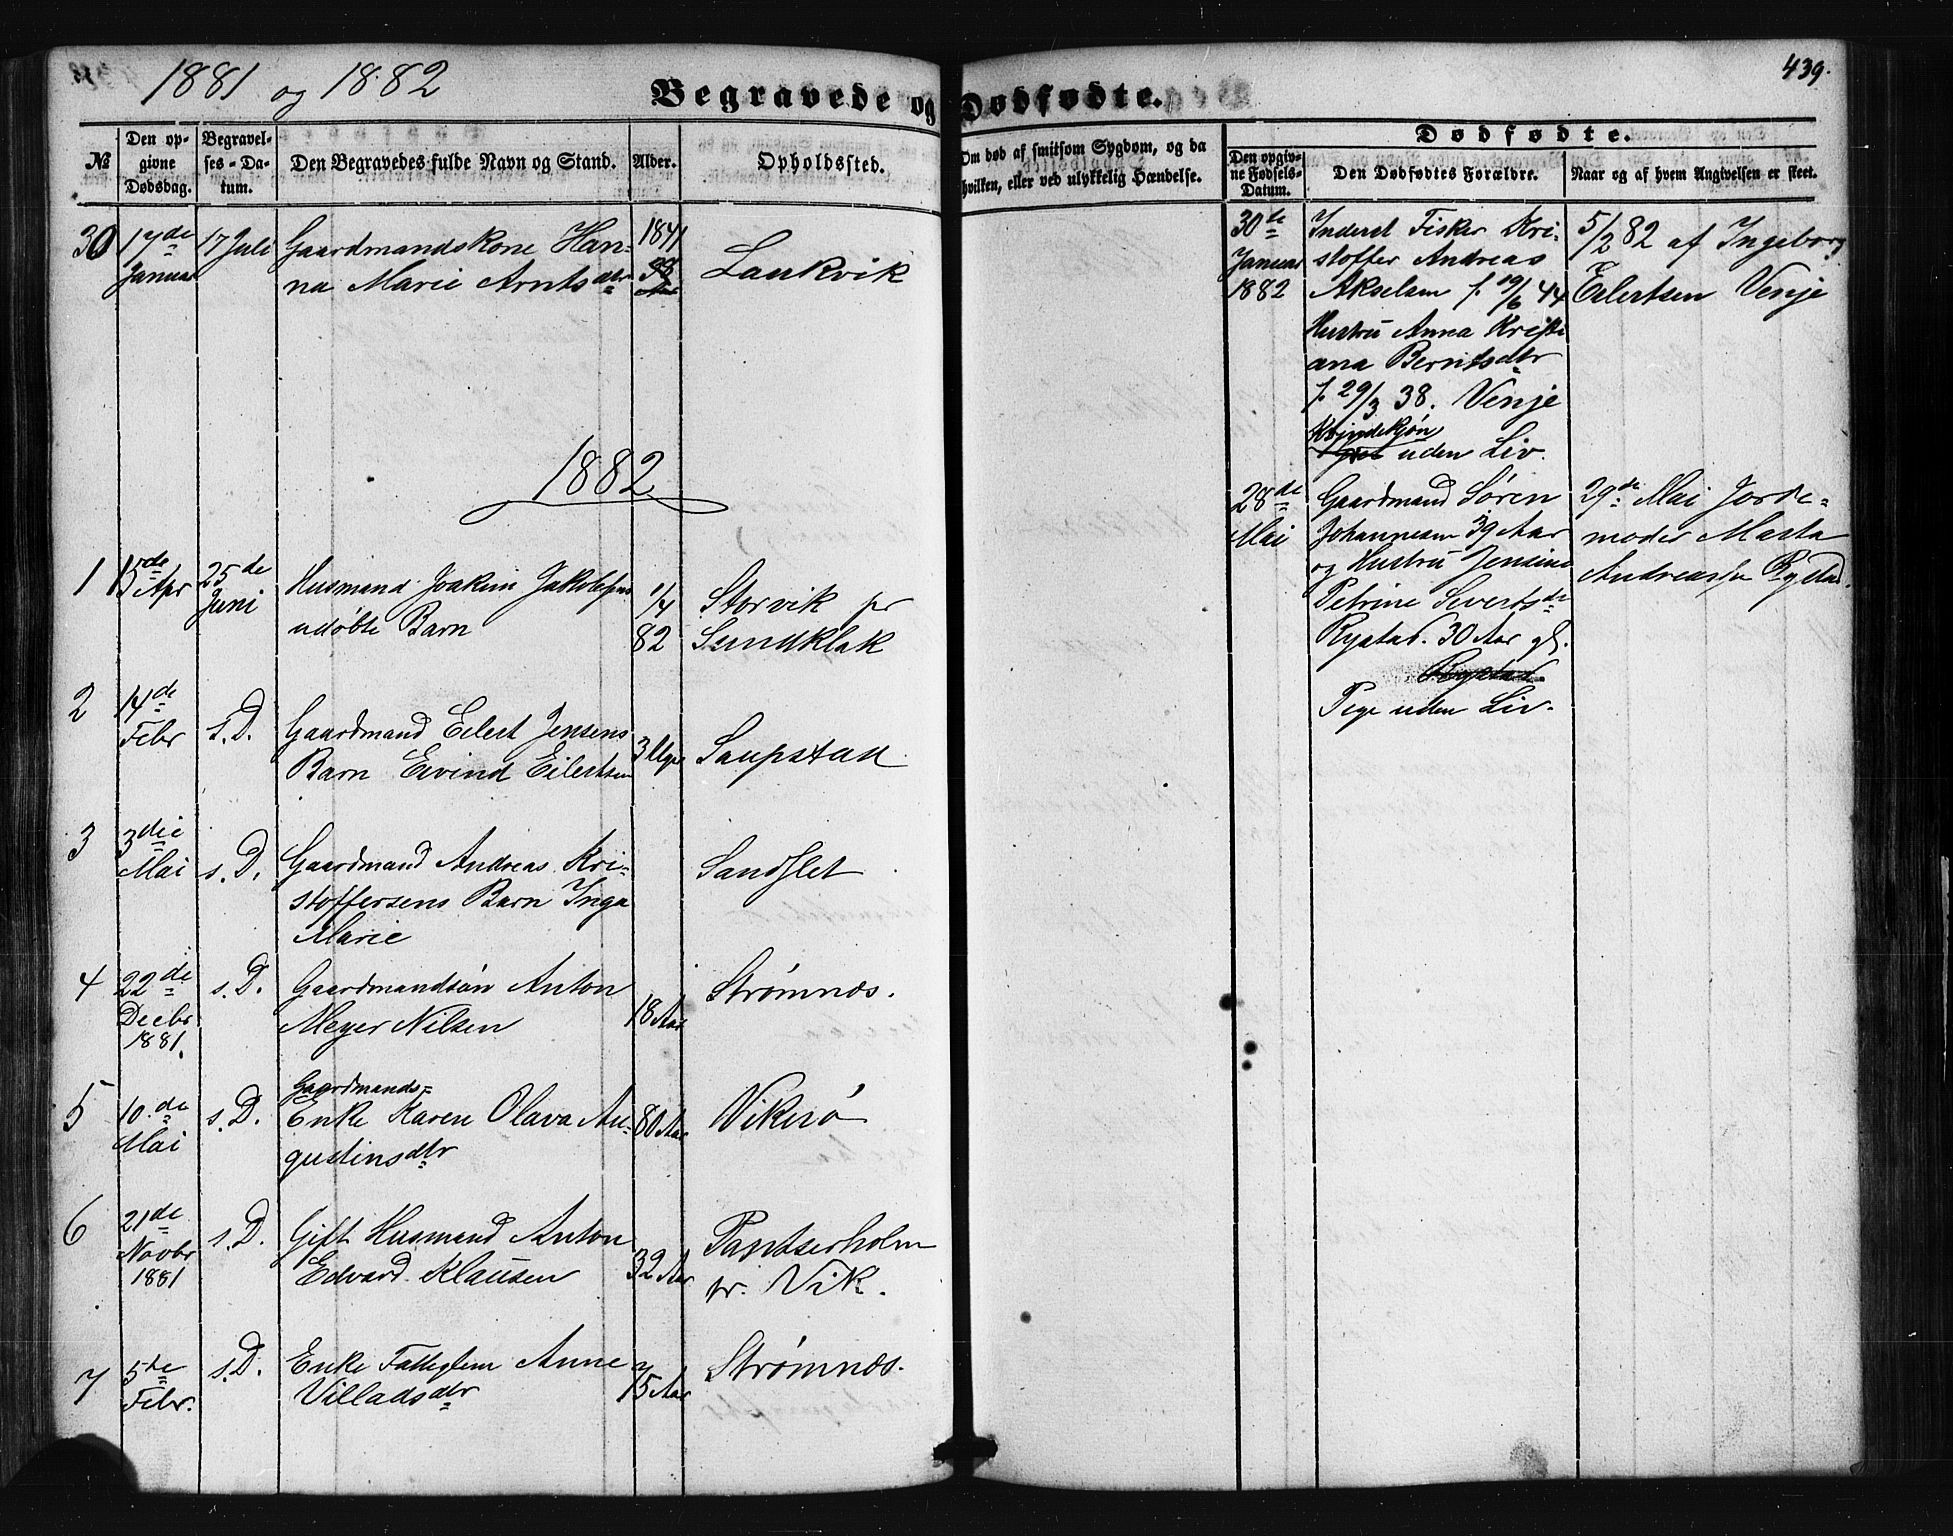 1881 og 1882
439.
Begravede og Dødfødte.
№
Den opgivne Dødsdag.
Begravelses-Datum.
Den Begravedes fulde Navn og Stand.
Alder.
Opholdssted.
Om død af smitsom Sygdom, og da
hvilken, eller ved ulykkelig Hændelse.
Dødfødte.
Den opgivne Fødsels-Datum.
Den Dødfødtes Forældre.
Naar og af hvem Angivelsen er skeet.
30 17de 17 Juli Gaardmandskone Han- 1841 Laukvik
Januar na Marie Arntsdtr
1882
1 15de 25de Husmand Joakim Jakobsens 1/4 Storvik pr
Apr Juni udøbte Barn 82 Sundklak
2 14de s.D. Gaardmand Eilert Jensens 3 Uger Saupstad
Febr Barn Eivind Eilertsen
3 3die s.D. Gaardmand Andreas Kri- Sandslet
Mai stoffersens Barn Inga
Marie
4 22de s.D. Gaardmandsøn Anton 18 Aar Strømnæs.
Decbr Meyer Nilsen
1881.
Gaardmands-
5 10de s.D. Enke Karen Olava Au- 80 Aar Vikerø
Mai gustinsdtr
6 21de s.D. Gift Husmand Anton 32 Aar
Novbr Edvard Klausen pr. Vik.
1881
7 5de s.D. Enke Fattiglem Anne 75 Aar Strømnæs.
Febr. Villadsdtr
30de Inderst Fisker Kri- 5/2 82 af Ingeborg
Januar stoffer Andreas Eilertsen Venje
1882 Akselsen f. 19/6 44
Hustru Anna Kristi
ana Berntsdtr
f. 29/3 38. Venje
Kvindekjøn
uden Liv.
28de Gaardmand Søren 29de Mai Jorde-
Mai Johannesen 39 Aar moder Marta
og Hustru Jensine Andreasdr Rystad.
Petrine Sivertsdr
Rystad. 30 Aar gl.
Rystad.
Pige uden Liv.